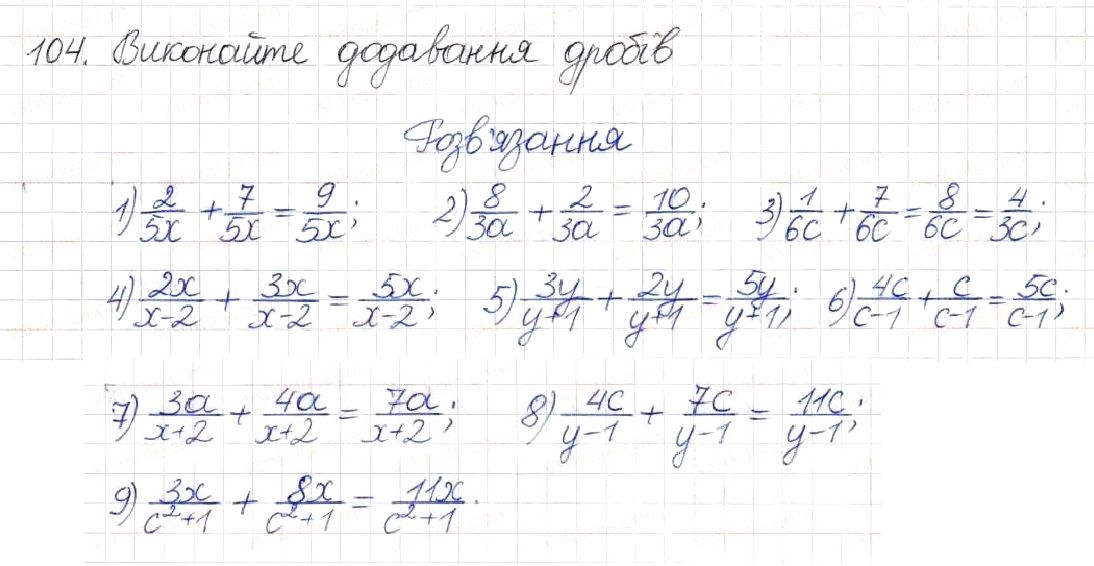 104. Виконайте додавання дробів
Розв'язання
1) 2/5x + 7/5x = 9/5x; 2) 8/3a + 2/3a = 10/3a; 3) 1/6c + 7/6c = 8/6c = 4/3c;
4) 2x/x-2 + 3x/x-2 = 5x/x-2; 5) 3y/y+1 + 2y/y+1 = 5y/y+1; 6) 4c/c-1 + c/c-1 = 5c/c-1;
7) 3a/x+2 + 4a/x+2 = 7a/x+2; 8) 4c/y-1 + 7c/y-1 = 11c/y-1;
9) 3x/c²+1 + 8x/c²+1 = 11x/c²+1.